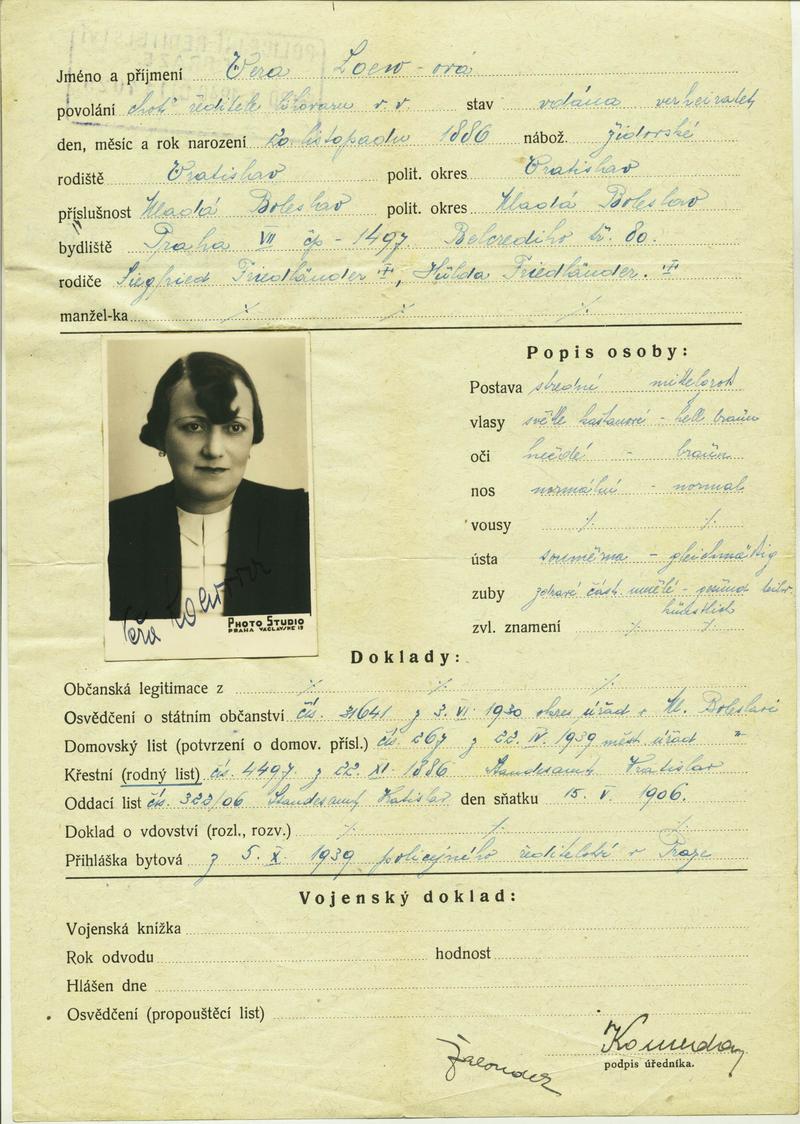 Jméno a příjmení Věra Loew-ová
povolání choť ředitele v. v. stav vdána verheiratet
den, měsíc a rok narození 20. listopadu 1886 nábož. židovské
rodiště Vratislav polit. okres Vratislav
příslušnost Mladá Boleslav polit. okres Mladá Boleslav
bydliště Praha VII čp - 1497 Belcrediho tř. 80.
rodiče Siegfried Friedländer †, Hulda Friedländer. †
manžel-ka ./. ./. ./.
Popis osoby:
Postava střední mittelgroß
vlasy světle kaštanové - hell braun
oči hnědé - braun
nos normální - normal
vousy ./. ./.
ústa souměrná - gleichmäßig
zuby zdravé část. umělé - gesund teilw. künstlich
zvl. znamení ./. ./.
Věra Loewová
PHOTO STUDIO
PRAHA VÁCLAVSKÉ 19
Doklady:
Občanská legitimace z ./. ./. ./.
Osvědčení o státním občanství čís. 31641 z 3. VI. 1930 okres úřad v Ml. Boleslavi
Domovský list (potvrzení o domov. přísl.) čís. 267 z 22. IV. 1939 měst. úřad "
Křestní (rodný list) čís. 4497 z 22. XI. 1886 Standesamt Vratislav
Oddací list čís. 323/06 Standesamt Vratislav den sňatku 15. V. 1906.
Doklad o vdovství (rozl., rozv.) ./. ./. ./.
Přihláška bytová z 5. X. 1939 policejního ředitelství v Praze
Vojenský doklad:
Vojenská knížka
Rok odvodu hodnost
Hlášen dne
Osvědčení (propouštěcí list)
podpis úředníka.